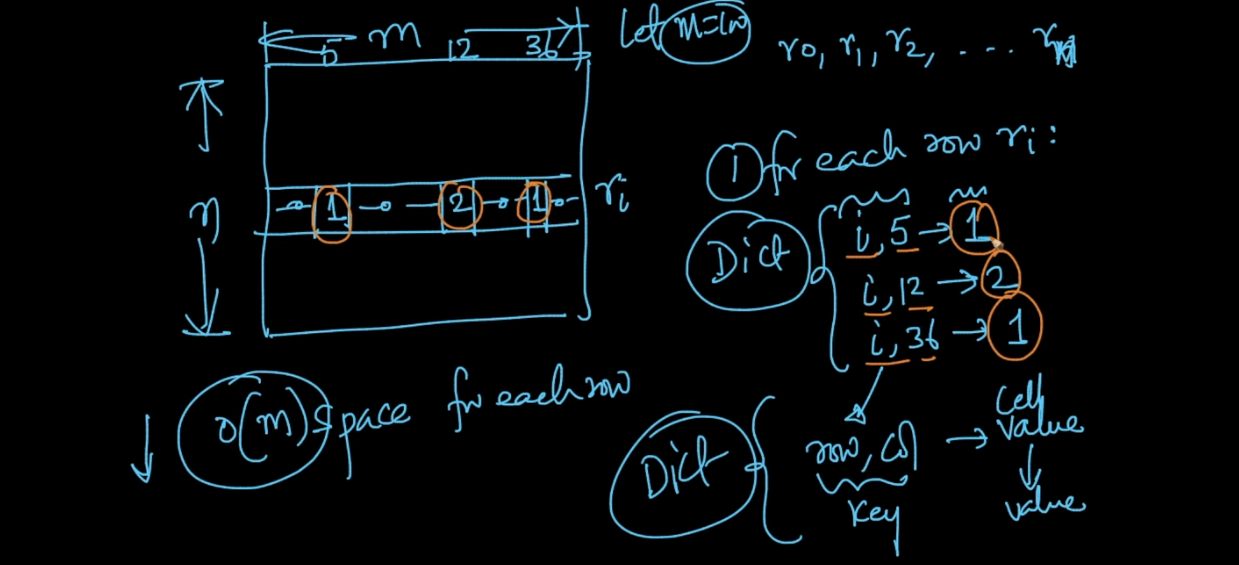 m
5 12 36
Let m=100
r0, r1, r2, ....
n
1 2 1 ri
① for each row ri:
Dict
i, 5 → 1
i, 12 → 2
i, 36 → 1
O(m) space for each row
Dict
row, col → cell value
key
value